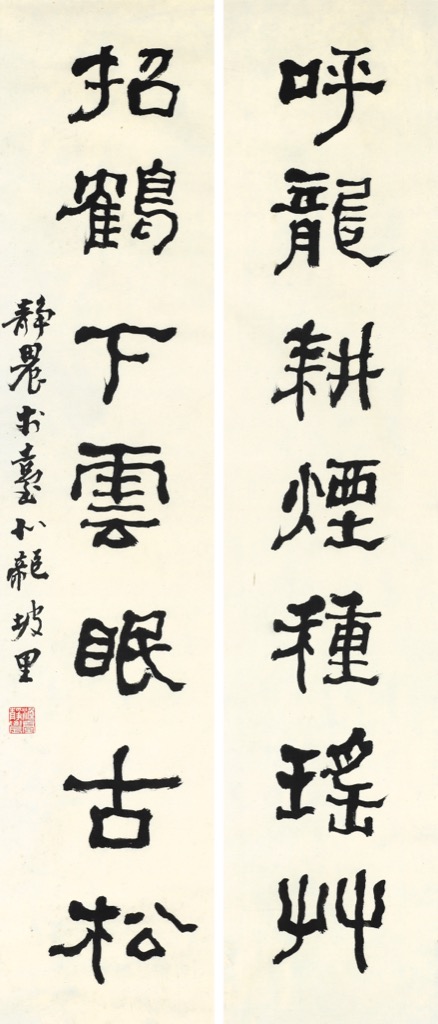 呼龍耕煙種瑤艸
招鶴下雲眠古松
靜農於臺北龍坡里